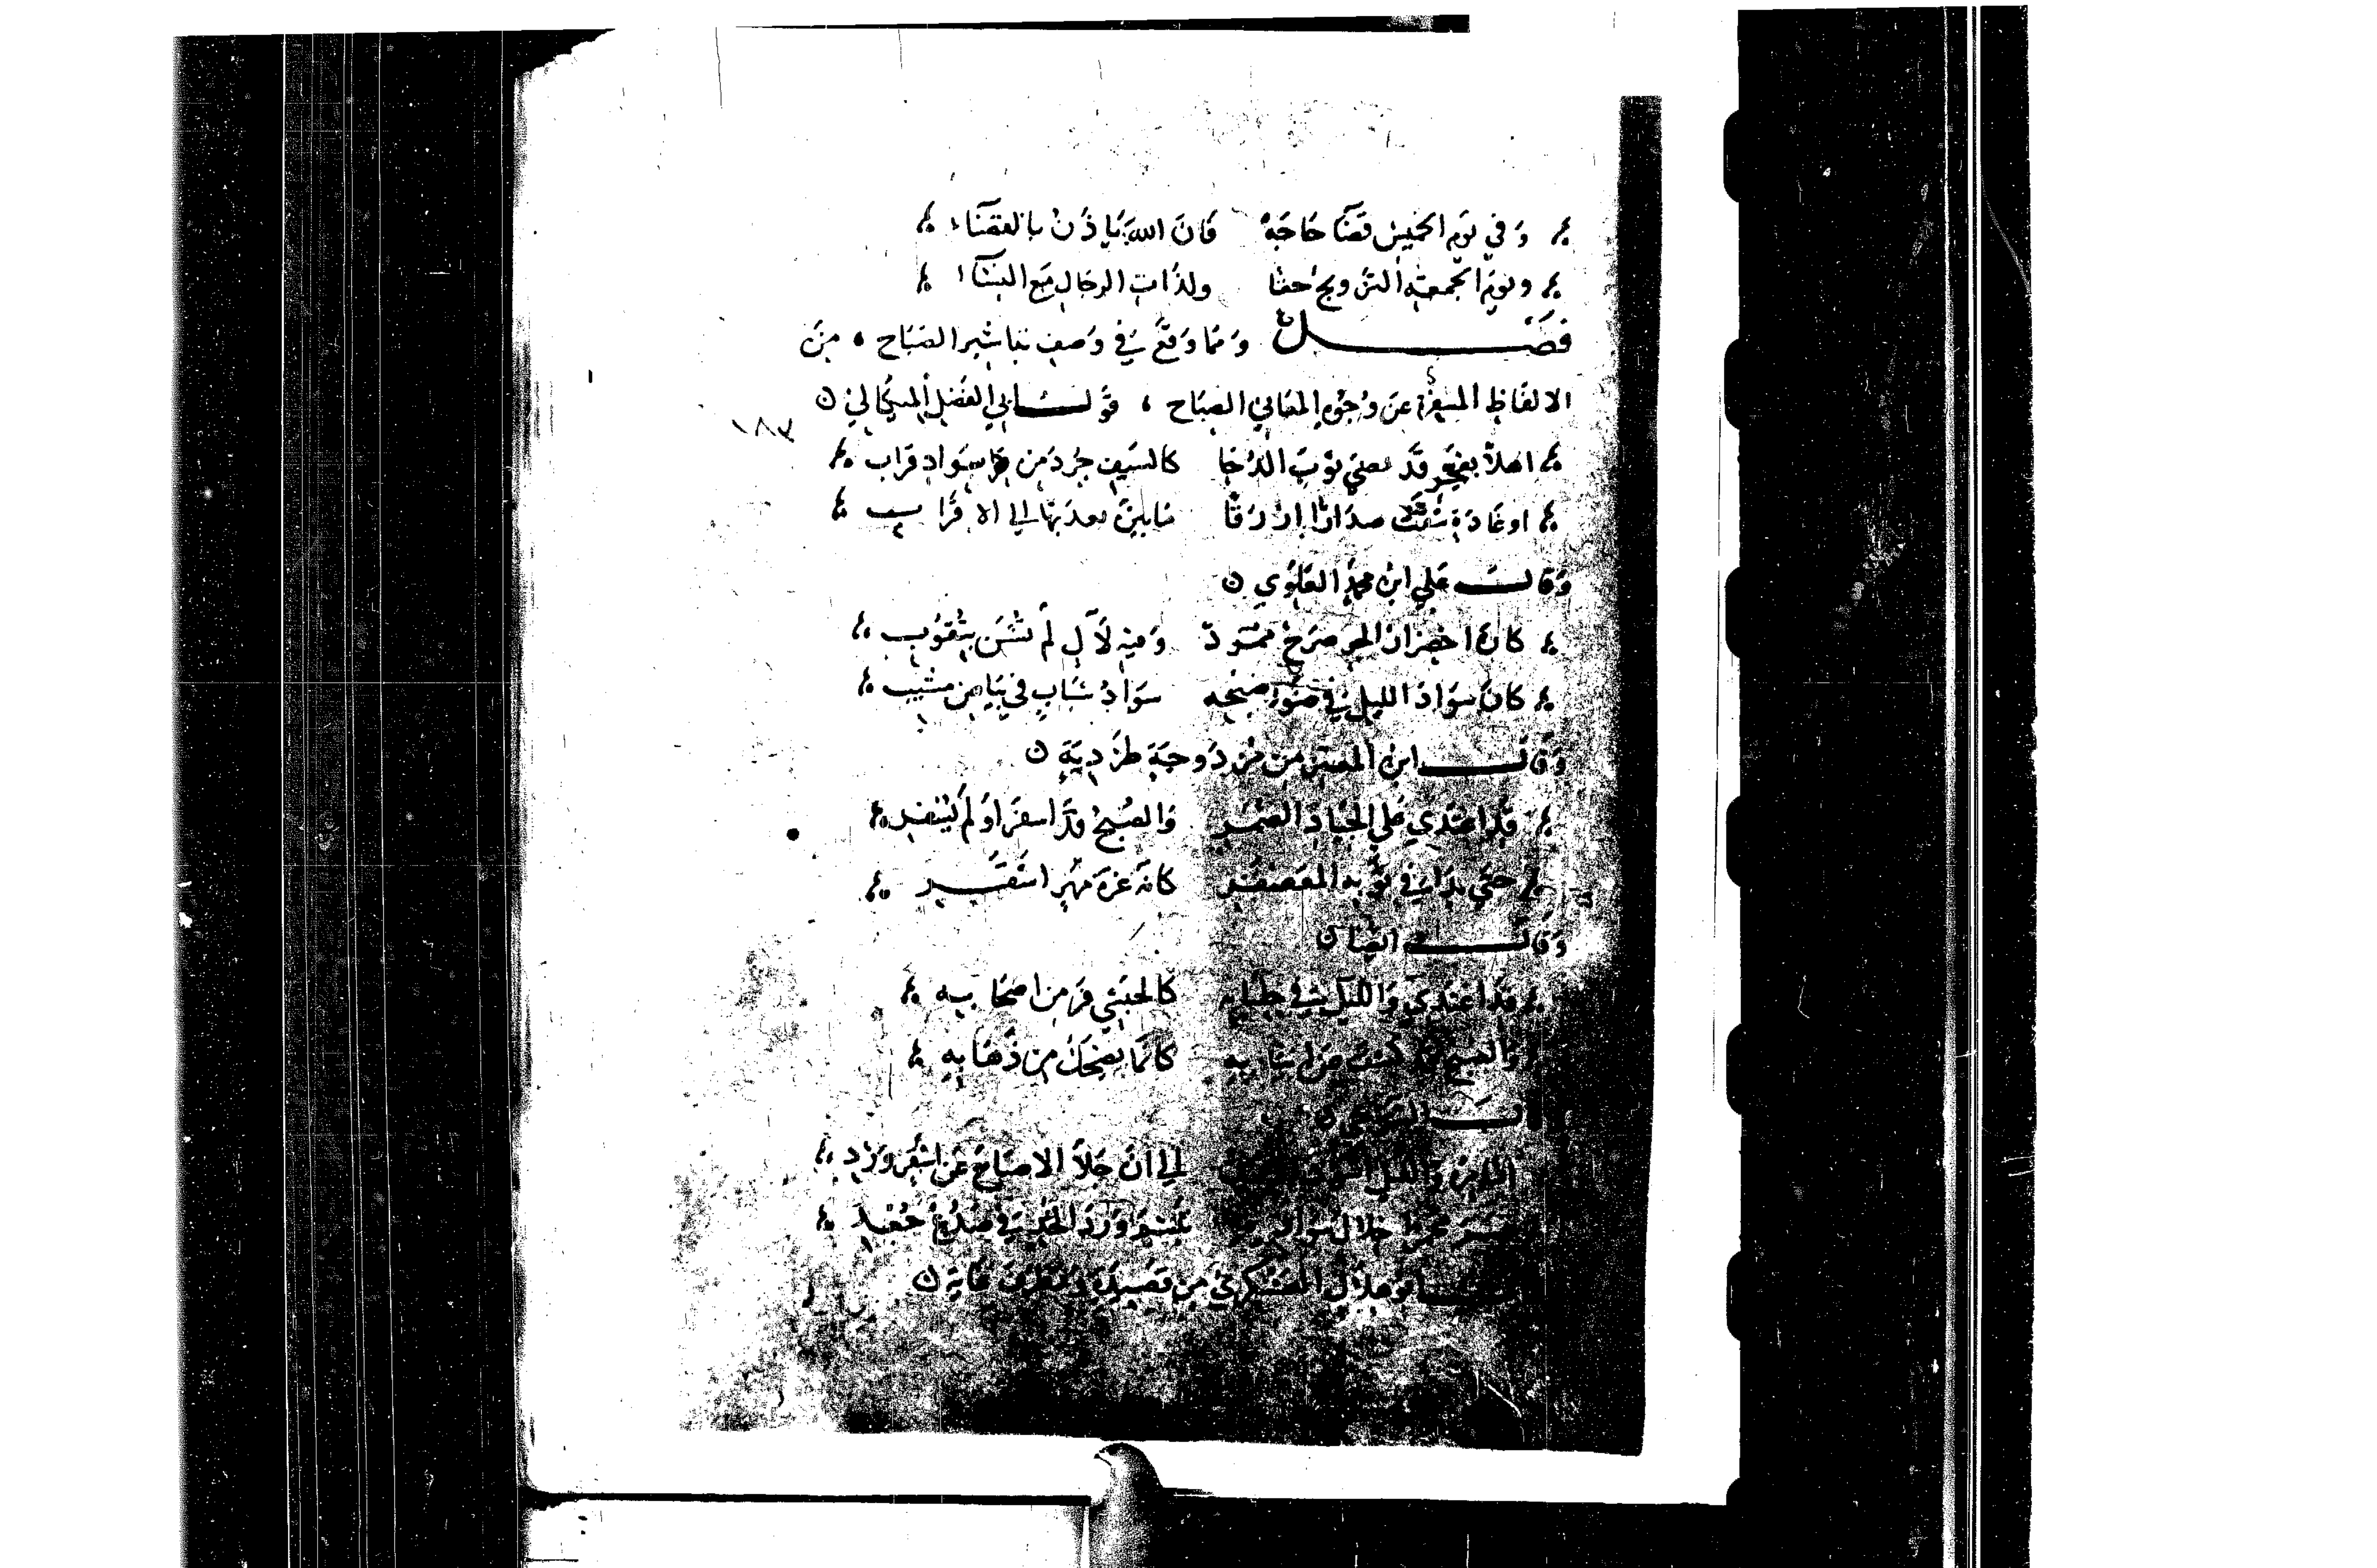 وَفي يَوم الخميس قضَآ حَاجَةٌ فَانَ اللَّهَ يَاذَنُ بالقضَآء
ويَوم الجمعة التزويج حقا ولذات الرجال مع النسَآء
فصَــل وَمما وَقعَ في وَصف تباشير الصَبَاح ، مِنَ
الالفَاظ المسفِرَة عن وُجُوه المعَاني الصِبَاح ، قولــ ابي الفَضل الميكَالي
١٨٣
اهلاً بفجر قد نضى ثوبَ الدُجَا كالسَيف جُردَ من سَوادِ قراب
اوغَادَة شقت صدارًا ازرقا مَابين الى الاتراب
وَقالــ علي ابن محمد العَلوي
كانَ اخضرار الجو صَرحٌ ممَرد وَفيه لآلٍ لم تشن بثقوب
كان سَوادَ الليل في ضَوء صبحه سَوَادُ شَبَابٍ في بيَاض مشيب
وَقَالــ ابن المعتز من مزدَوجَةٍ طَردِيَةٍ
قد اغتدي على الجيَاد الضمر وَالصُبحُ قد اسفرَ اوْ لم يُسْفِر
حتى بدَا في ثوبه المعَصفر كانه غرة مُهر اشقر
وَقالــ ايضًا
قد اغتدي وَالليل في جلبَابه كالحبَشي فرَ من اصحَابه
وَالصبح قد كشف عن انيَابه كانما يضحك من ذهَابه
وَالليل الى انْ جَلاَ الاصبَاحُ عَن اشقر وَرد
خلال سَوَاده وَردَ الخد في صُدُغ جُعْدِ
ابو هلاَل العَسكري من قصيدَةٍ